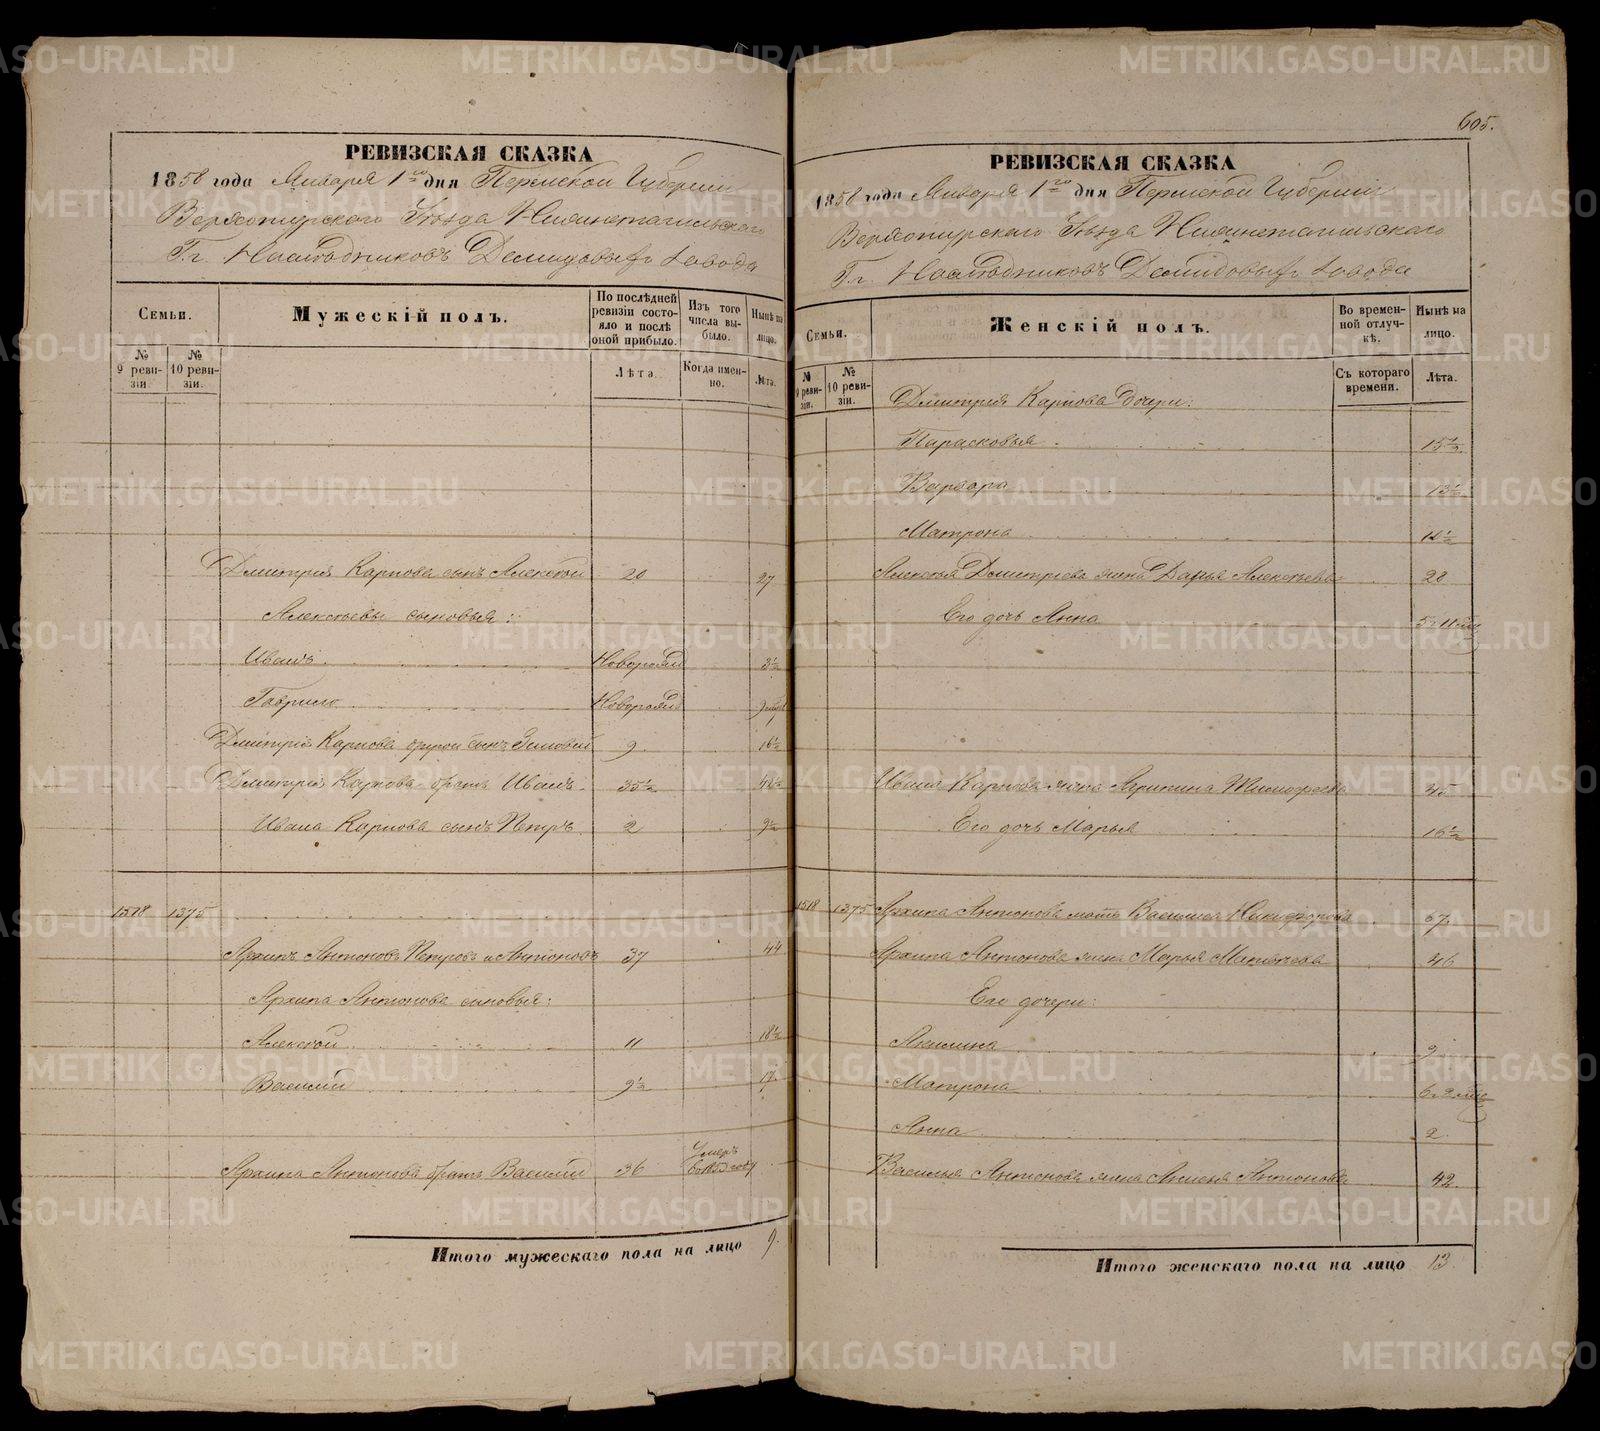 605.
РЕВИЗСКАЯ СКАЗКА
1858 года Января 1го дня Пермской Губернии
Верхотурского Уѣзда Нижнетагильскаго
Г.г. Наслѣдниковъ Демидовыхъ Завода
Семьи.
Мужескій полъ.
По послѣдней ревизіи состояло и послѣ оной прибыло.
Изъ того числа выбыло.
Нынѣ на лицо.
№ 9 ревизіи.
№ 10 ревизіи.
Лѣта.
Когда именно.
Лѣта.
Дмитрія Карпова сынъ Алексѣй 20 27
Алексѣевы сыновья:
Иванъ Новорожд 3½
Гаврило Новорожд
Дмитрія Карпова другой сынъ 9 16½
Дмитрія Карпова братъ Иванъ 35½ 42½
Ивана Карпова сынъ Петръ 2 9½
1518 1375
Архипъ Антоновъ Петровъ и Антоновъ 37 44
Архипа Антонова сыновья:
Алексѣй 11 18½
Василій 9½ 17
Архипа Антонова братъ Василій 36 Умеръ
Итого мужескаго пола на лицо 9.
РЕВИЗСКАЯ СКАЗКА
1858 года Января 1го дня Пермской Губерніи
Верхотурскаго Уѣзда Нижнетагильскаго
Г.г. Наслѣдниковъ Демидовыхъ Завода
Семьи.
Женскій полъ.
Во временной отлучкѣ.
Нынѣ на лицо.
№ 9 ревизіи.
№ 10 ревизіи.
Съ котораго времени.
Лѣта.
Дмитрія Карпова дочери:
Парасковья 15½
Варвара 13½
Матрона
Алексѣя Дмитріева жена Дарья Алексѣева 28
Его дочь Анна
Ивана Карпова жена Агрипина Тимофеева 45
Его дочь Марья 16½
1518 1375 Архипа Антонова мать Василиса Никифорова 67
Архипа Антонова жена Марья Матвѣева 46
Его дочери:
Акилина 9
Матрона
Анна 2
Василья Антонова жена Антонова 42
Итого женскаго пола на лицо 13.
METRIKI.GASO-URAL.RU